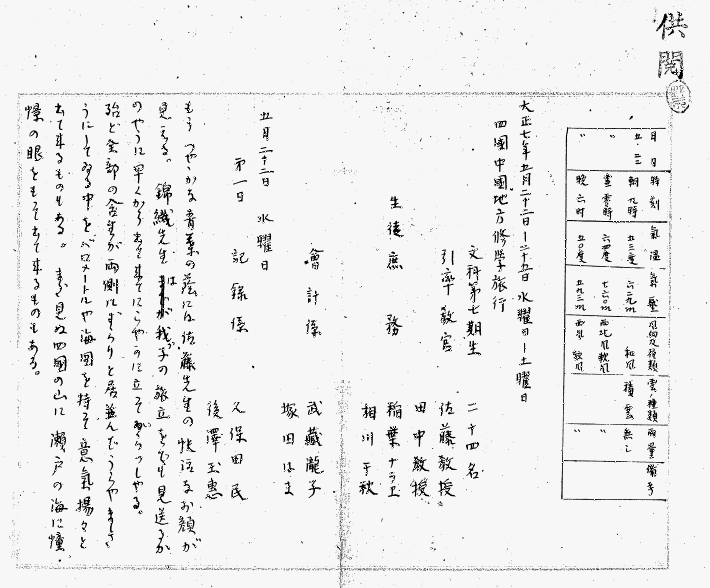 供閲
月日 時刻 氣温 氣壓 風向及種類 雲種類 雨量 備考
五、二二 朝九時 五三度 六二九m 和風 積雲 無し
〃 六四度 七六〇m 西北風軟風
〃 晩六時 五〇度 五九三m 西風 軟風 〃 〃
大正七年五月二十二日―二十五日 水曜日―土曜日
四國中國地方修學旅行
文科第七期生 二十四名
引率教官 佐藤教授
田中教授
生徒庶務 稲葉ナラヱ
相川千秋
會計係 武藏龍子
塚田はま
五月二十二日 水曜日
第一日 記錄係 久保田民
後澤玉惠
もうつややかな青葉の蔭には佐藤先生の快活なお顔が
見える。錦織先生は我が子の旅立をでも見送るか
のやうに早くから出て来てにこやかに立つてゐらつしやる。
殆ど全部の舎生が両側にずらりと居並んでうらやましさ
うにしてゐる中をバロメートルや海圖を持つて意氣揚々と
出て来るものもある。まだ見ぬ四國の山に瀬戸の海に憧
憬の眼をもつて出て来るものもある。